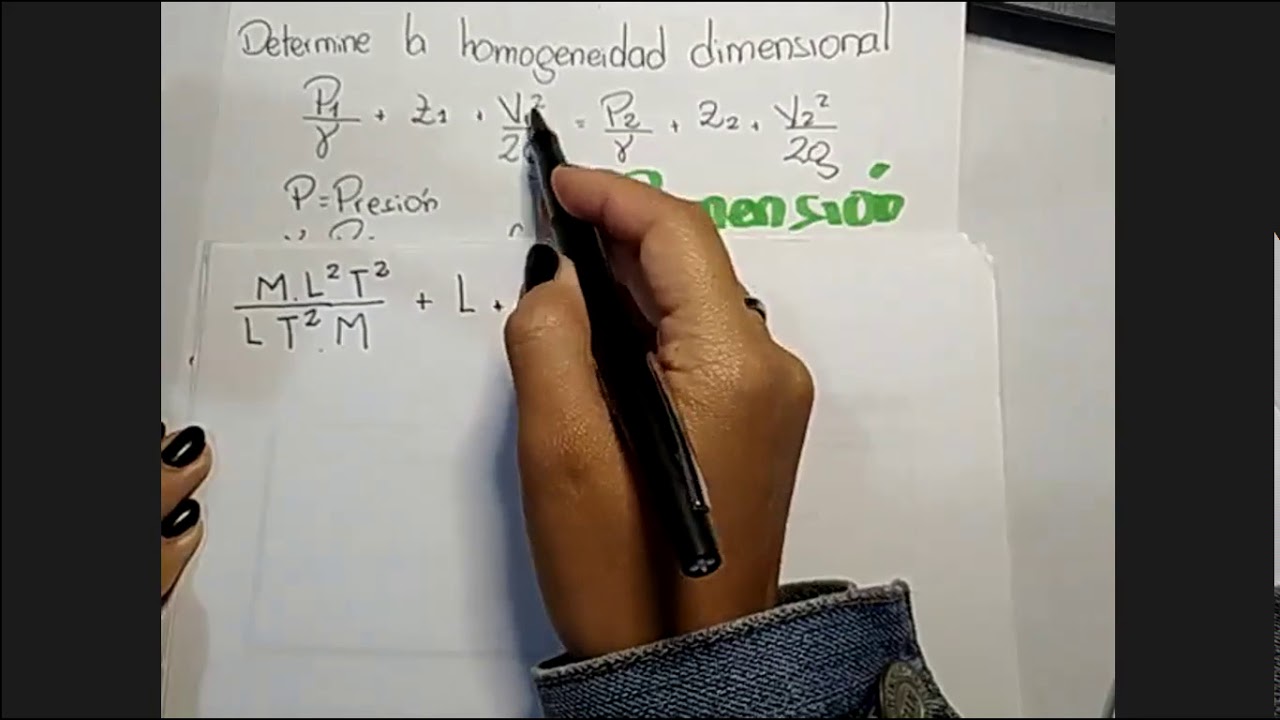 Determine la homogeneidad dimensional
P₁/γ + Z₁ + V₁²/2g = P₂/γ + Z₂ + V₂²/2g
P=Presión
M.L²T²/LT².M + L +